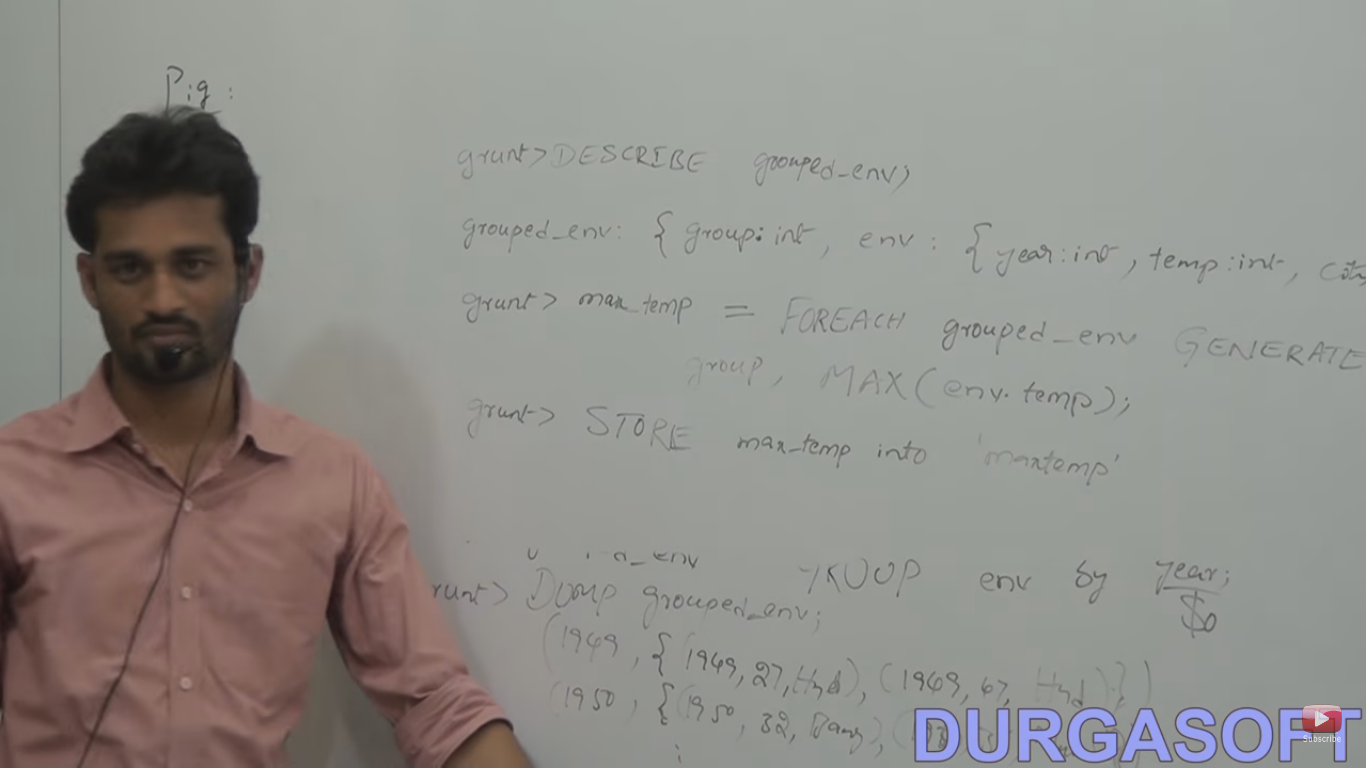 Pig:
grunt> DESCRIBE grouped_env;
grouped_env: { group: int, env : { year:int, temp:int,
grunt> max_temp = FOREACH grouped_env GENERATE
group, MAX(env.temp);
grunt> STORE max_temp into 'maxtemp'
env by year;
$0
DUMP grouped_env;
(1949, { 1949, 27, Hyd), (1949, 67, Hyd)})
(1950, {(1950, 32, Bang),
DURGASOFT
Subscribe